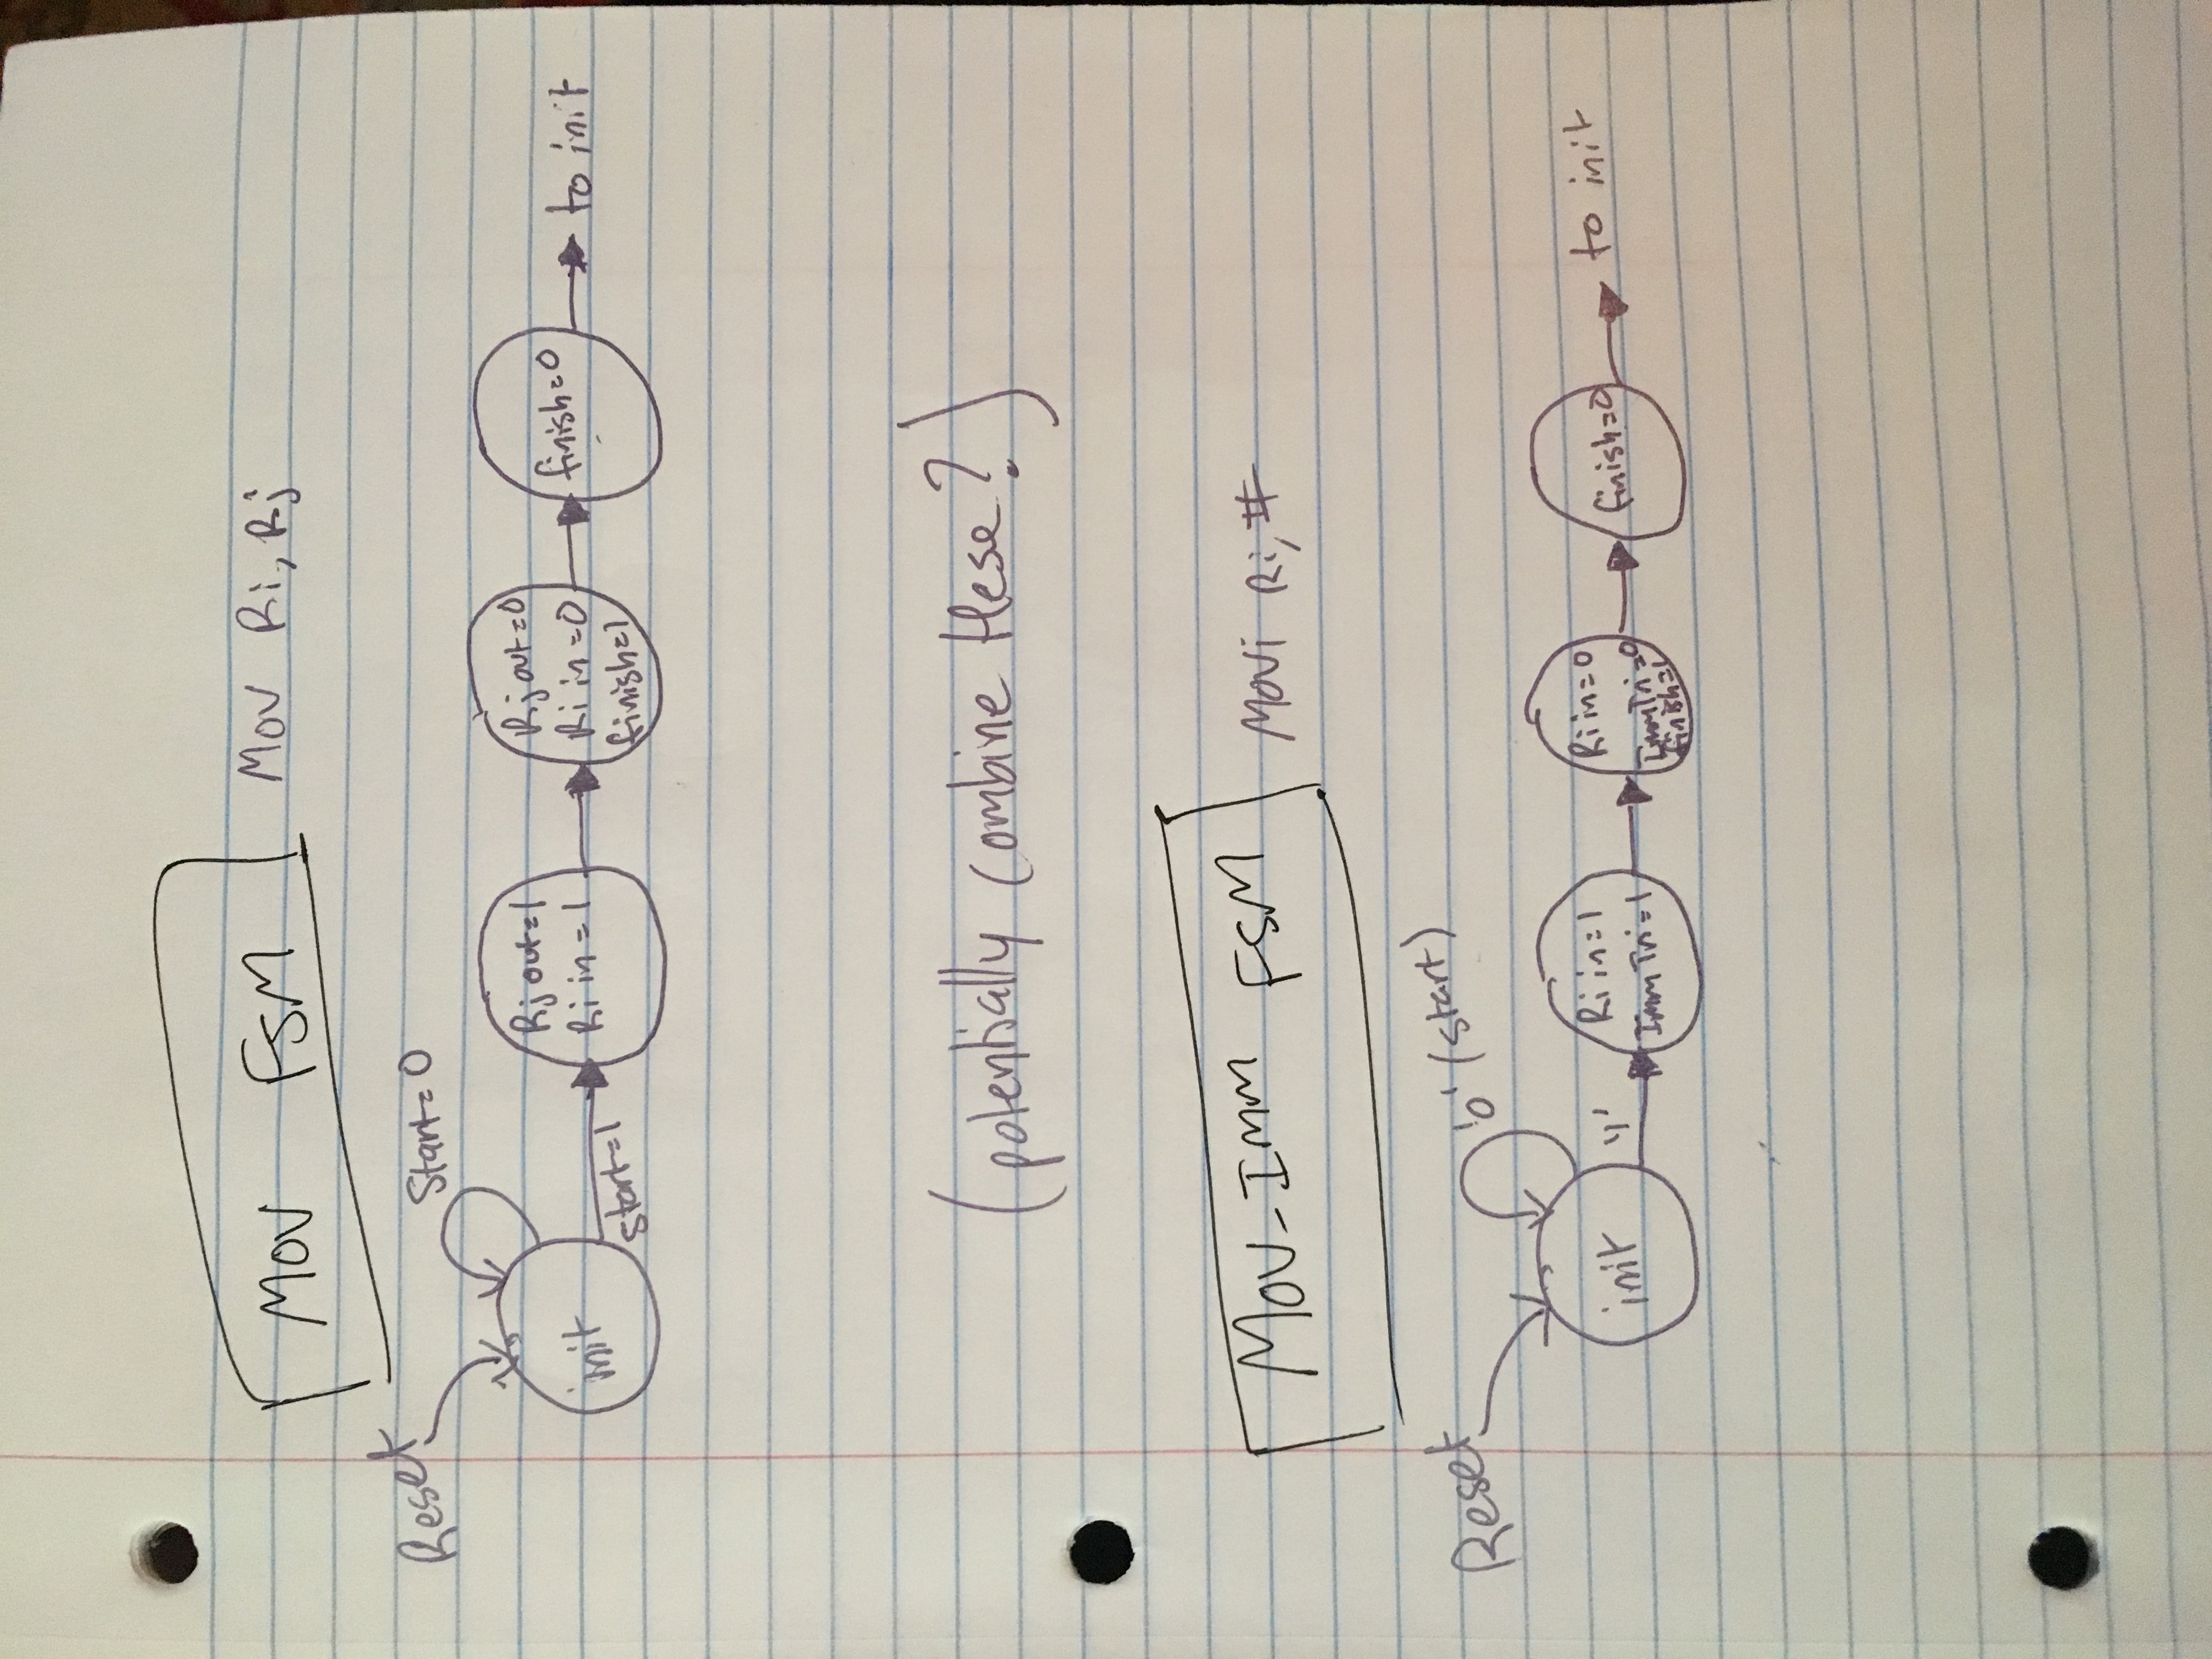 MOV FSM
MOV Ri, Rj
Reset
Start=0
init
start=1
Rj out=1
Ri in=1
Rj out=0
Ri in=0
finish=1
finish=0
to init
(potentially combine these?)
MOV-Imm FSM
MOVi Ri, #
Reset
'0' (start)
init
'1'
Ri in=1
Imm Tri=1
Ri in=0
Imm Tri=0
finish=1
finish=0
to init